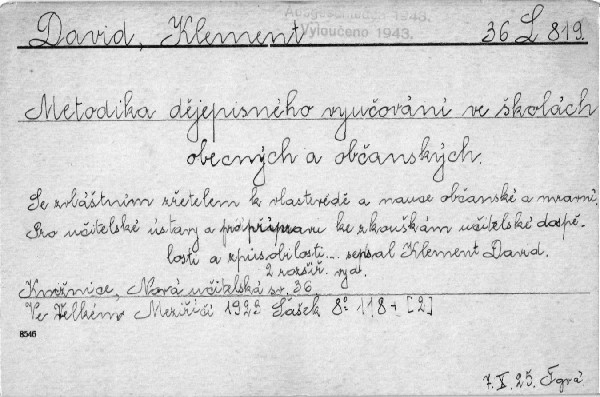 Ausgeschieden 1943.
David, Klement 36 L 819.
Vyloučeno 1943.
Metodika dějepisného vyučování ve školách
obecných a občanských.
Se zvláštním zřetelem k vlastivědě a nauce občanské a mravní.
Pro učitelské ústavy a pro přípravu ke zkouškám učitelské dospě-
losti a způsobilosti... sepsal Klement David.
2 rozšíř. vyd.
Knižnice, Nová učitelská sv. 36.
Ve Velkém Meziříčí 1922 Šašek 8° 118 + [2]
8546
7.X.25.